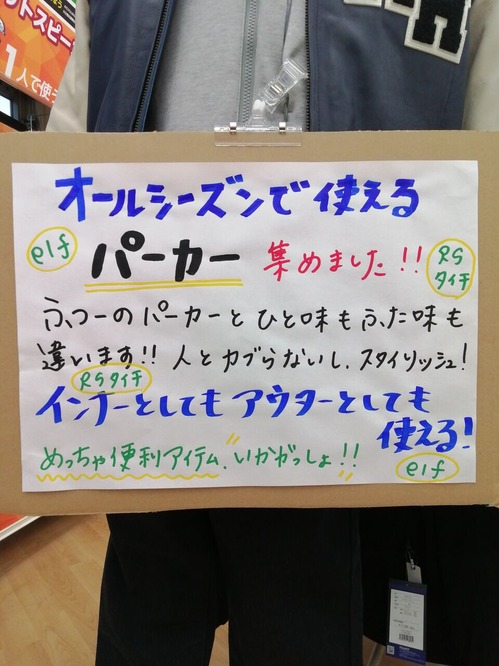 ットスピー
1人で使
オールシーズンで使える
elf
パーカー
集めました!!
RS
タイチ
ふつーのパーカーとひと味もふた味も
違います!! 人とカブらないし、スタイリッシュ!
RSタイチ
インナーとしてもアウターとしても
使える!
elf
めっちゃ便利アイテム、いかがっしょ!!